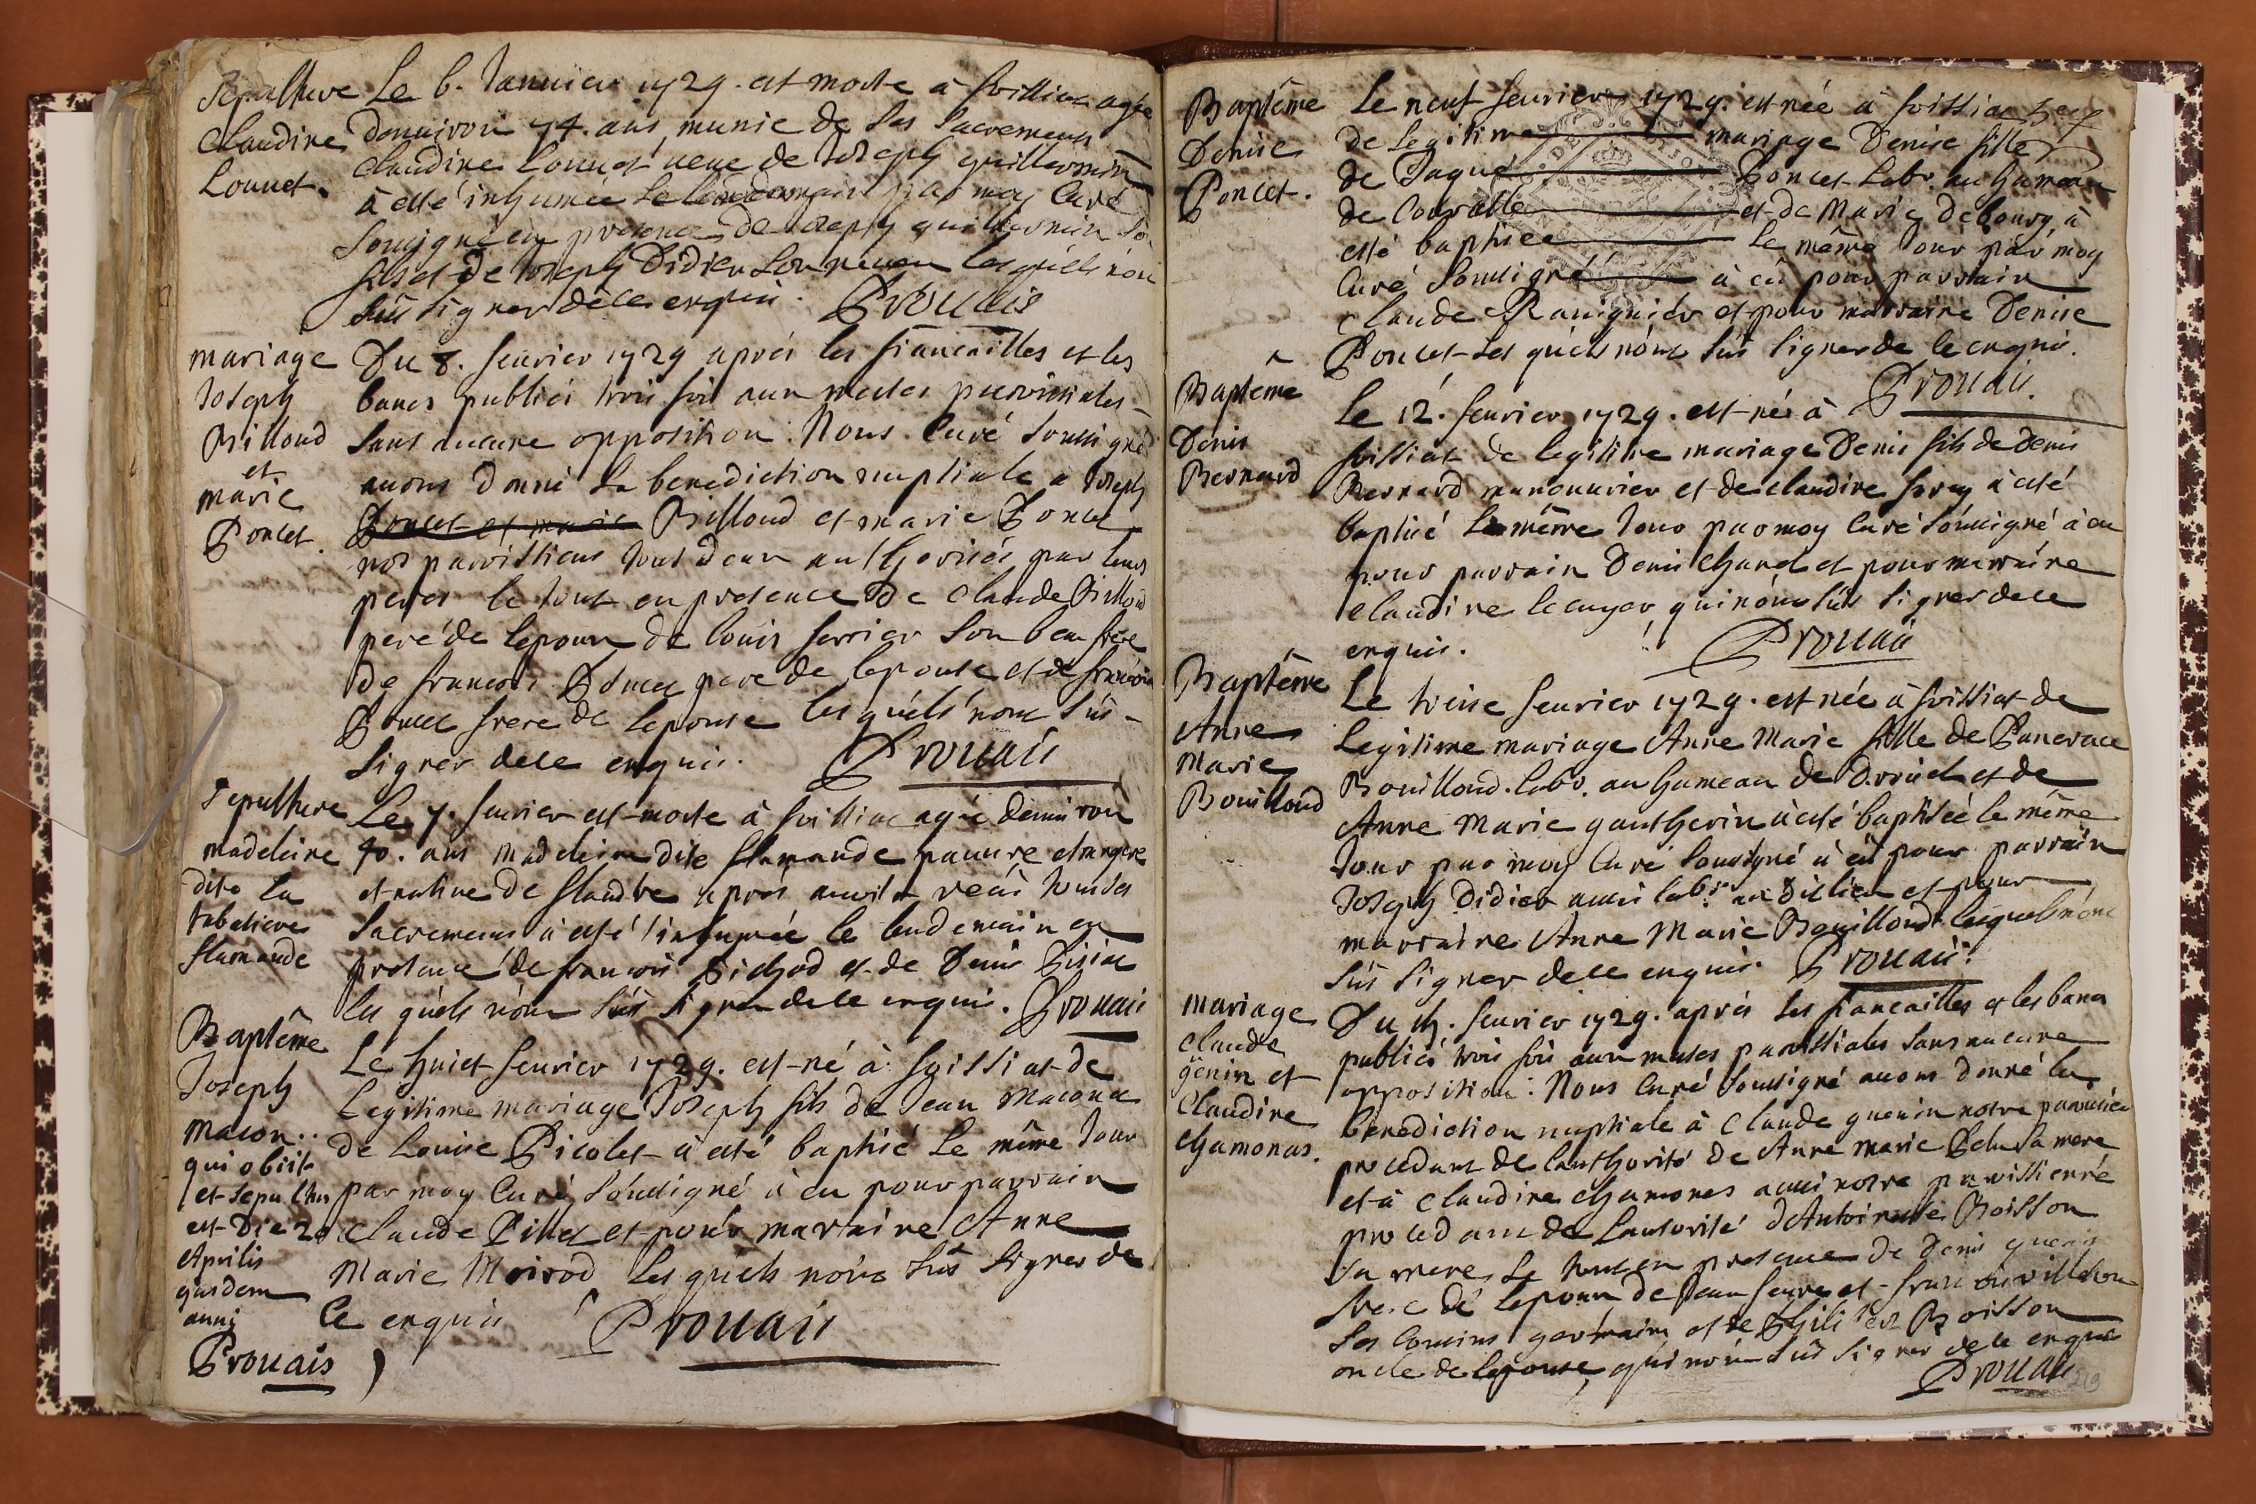 Sepulture
Claudine
Louuet.
Le 6. Januier 1729. est morte à Foissiac agée
denuiron 74. ans munie de ses sacremens
Claudine Louuet ueue de Joseph guillermin
à esté inhumée le lendemain par moy Curé
soussigné en presence de Joseph guillermin son
fils et de Joseph Didier son neueu lesquels n'ont
sus signer de ce enquis. Prouais
mariage
Joseph
Billoud
et
marie
Poncet.
Du 8. feurier 1729 aprés les fiancailles et les
bancs publiés trois fois aux messes paroissiales
sans aucune opposition. Nous Curé soussigné
auons donné la benediction nuptiale a Joseph
Poncet et marie Billoud et marie Poncet
nos paroissiens tous deux authorisés par leurs
peres le tout en presence de Claude Billoud
peré de lepoux de louis ferrier son beau frere
de francois Poncet pere de lepouse et de francois
Poncet frere de lepouse lesquels n'ont sus
signer de ce enquis. Prouais
Sepulture
madeleine
dite la
tabatiere
flamande
Le 7. feurier est morte à foissiac agée denuiron
40. ans madeleine dite flamande pauure etrangere
et natiue de flandre aprés auoir receu tous ses
sacremens à esté inhumée le lendemain en
presence de francois Pichod et de Denis Pisiat
les quels n'ont sus signer de ce enquis. Prouais
Baptême
Joseph
macon..
qui obiit
et sepultus
est die 20
Aprilis
quidem
anni
Prouais
Le huict feurier 1729. est né à foissiat de
legitime mariage Joseph fils de Jean macon et
de Louise Picolet à esté baptisé le même Jour
par moy Curé soussigné à eu pour parrain
Claude Pillet et pour marraine Anne
Marie Moirod les quels n'ont sus signer de
ce enquis Prouais
Baptême
Denise
Poncet.
Le neuf feurier 1729. est née à foissiat
de legitime mariage Denise fille
de Jaque Poncet labr. au hameau
de Couralle et de Marie debourg à
esté baptisee le même Jour par moy
Curé soussigné à eu pour parrain
Claude Rauiguier et pour marraine Denise
Poncet les quels n'ont sus signer de ce enquis.
Prouais.
Bapteme
Denis
Bernard
Le 12. feurier 1729. est né à
foissiat de legitime mariage Denis fils de denis
Bernard manouurier et de claudine foray à esté
baptisé le même Jour par moy Curé soussigné à eu
pour parrain Denis Charel et pour marraine
claudine lecuyer qui n'ont sus signer de ce
enquis. Prouais
Baptême
Anne
Marie
Bouilloud
Le treise feurier 1729. est née à foissiat de
legitime mariage Anne Marie fille de Pancrace
Bouilloud. labr. au hameau de Drouel et de
Anne Marie gautherin à esté baptisée le même
Jour par moy Curé soussigné à eu pour parrain
Joseph Didier aussi labr. au dit lieu et pour
marraine Anne Marie Bouilloud lesquels n'ont
sus signer de ce enquis. Prouais.
mariage
Claude
genin et
Claudine
Chamonas.
Du 15. feurier 1729. aprés les fiancailles et les bancs
publiés trois fois aux messes paroissiales sans aucune
opposition: Nous Curé soussigné auons donné la
benediction nuptiale à Claude guenin notre paroissien
procedant de lauthorité de Anne marie Pelu sa mere
et à Claudine Chamones aussi notre paroissienne
procedant de lautorité d'Antoinette Boisson
sa mere le tout en presence de Denis guenin
frere de lepoux de Jean feure et francois uilleton
ses Cousins germains et de Philibert Boisson
oncle de lepouse qui n'ont sus signer de ce enquis
Prouais
213